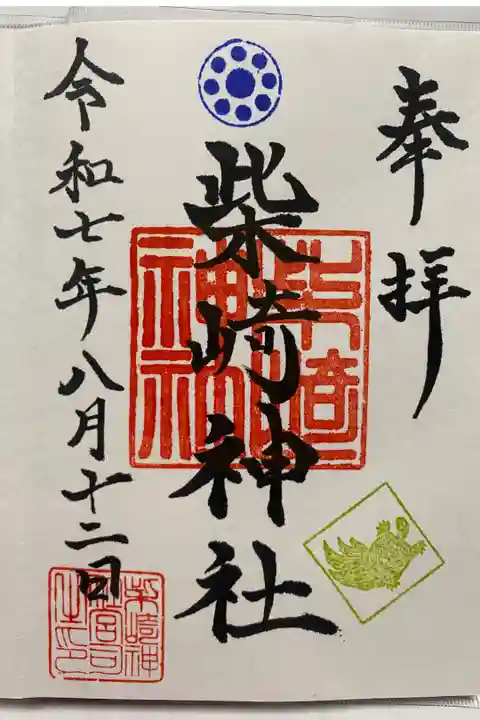 奉拝
柴崎神社
令和七年八月十二日
柴崎神社
柴崎神社宮司之印